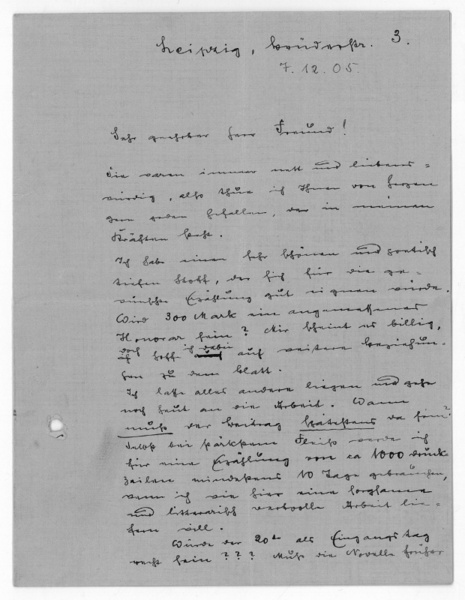 Leipzig, Brüderstr. 3.
7.12.05
Sehr geehrter Herr Freund!
Sie waren immer nett und liebens=
würdig, also thue ich Ihnen von Herzen
gern jeden Gefallen, der in meinen
Kräften steht.
Ich habe einen sehr schönen und poetisch
reichen Stoff, der sich für die ge=
wünschte Erzählung gut eignen würde.
Wird 300 Mark ein angemessenes
Honorar sein? Mir scheint es billig,
doch hoff ich dabei auf weitere Beziehun.
gen zu dem Blatt.
Ich lasse alles andere liegen und gehe
noch heut an die Arbeit. Wann
muss der Beitrag spätestens da sein?
Selbst bei stärkstem Fleiß werde ich
für eine Erzählung von ca 1000 Druck
zeilen mindestens 10 Tage gebrauchen,
wenn ich wie hier eine sorgsame
und litterarisch wertvolle Arbeit lie=
fern will.
Würde der 20te als Eingangstag
recht sein??? Muss die Novelle früher